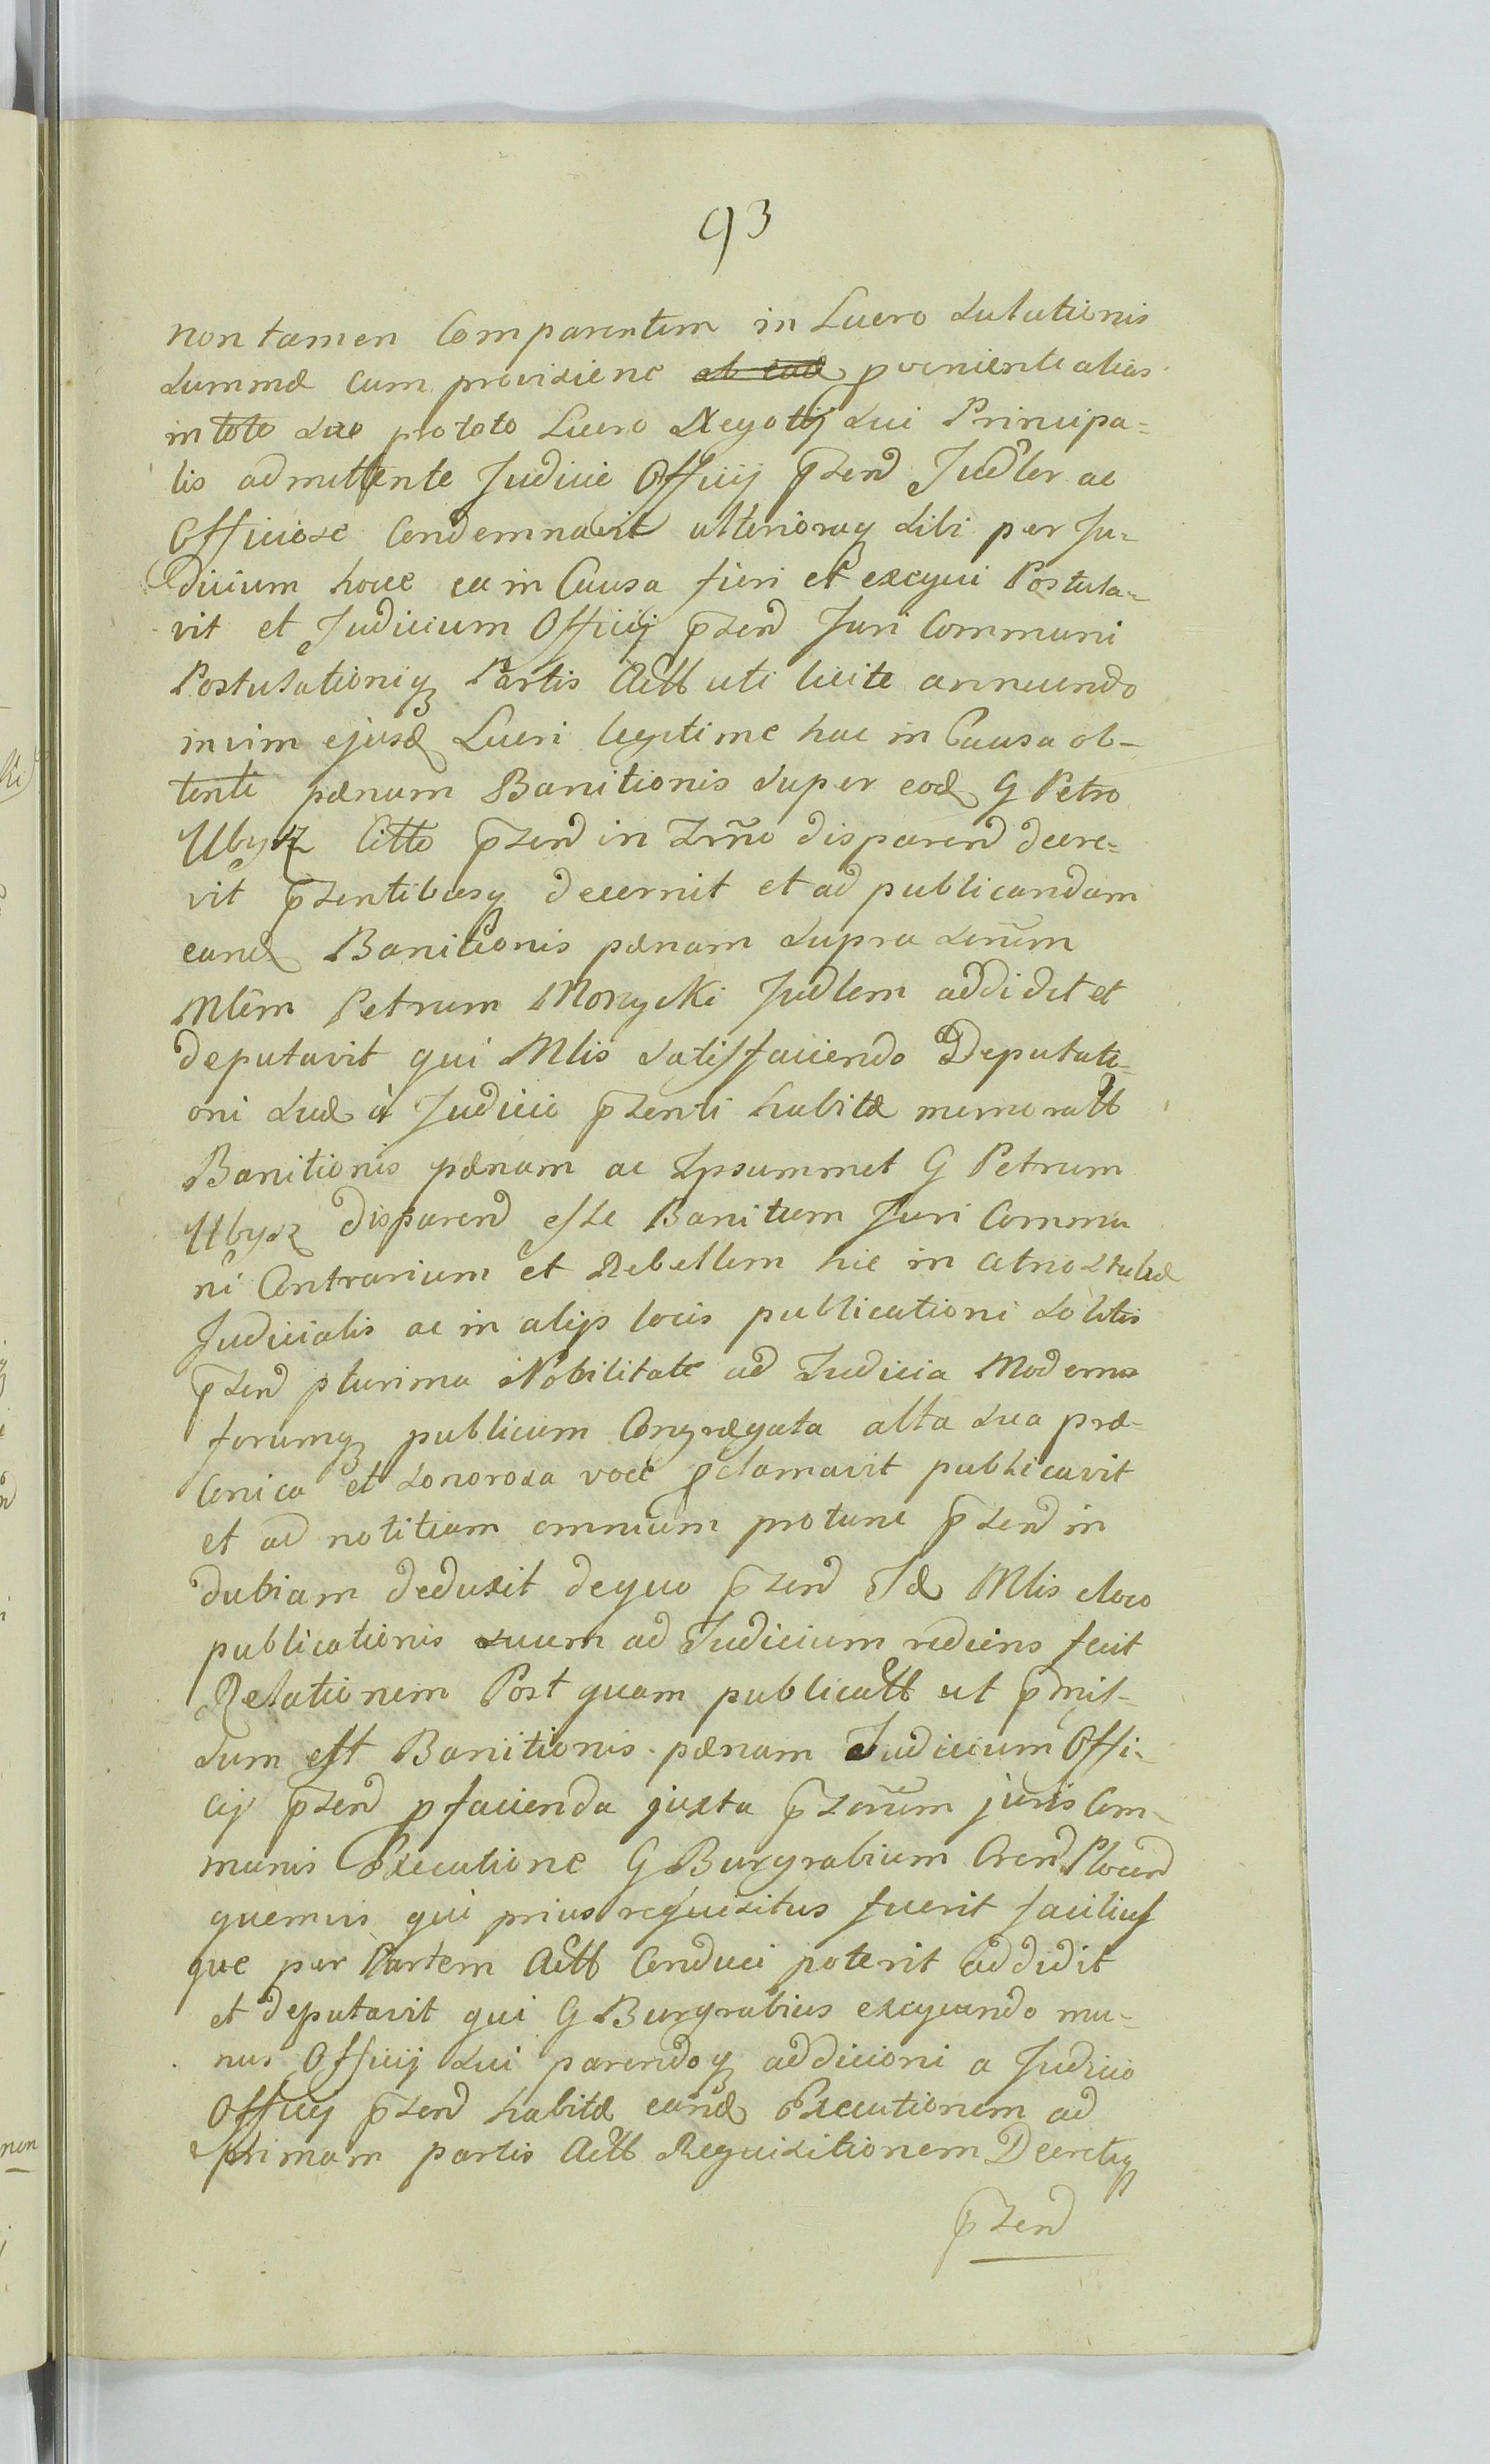 93
non tamen Comparentem in Lucro Solutionis
Summæ cum provisione ab eade proveniente alias
in toto suo pro toto Lucro Negotij sui Principa=
lis admittente Judicii Officij pñzend Judler ac
Officiose Condemnavit ulterioraq sibi per Ju=
dicium hocce ea in Causa fieri et exequi Postula=
vit et Judicium Officij pñzend Juri Communi
Postulationiq Partis Actt uti licite annuendo
in vim ejusd Lucri legitime hac in Causa ob=
tente pænam Banitionis super eod G Petro
Ubysz Citto pñzend in Trno disparend decre=
vit pñzentibusq decernit et ad publicandam
eand Banitionis pænam supra Scriptum
Mlem Petrum Monycki Judlem addidit et
deputavit qui Mlis Satisfaciendo Deputati=
oni suæ à Judicio pñzenti habitæ memoratt
Banitionis pænam ac Ipsummet G Petrum
Ubysz disparend esse Banitum Juri Commu
ni Contrarium et Rebellem hic in Atrio Stubæ
Judicialis ac in alijs locis publicationi Solitis
pñzend plurima Nobilitate ad Judicia Moderna
forumq publicum Congregata alta sua præ=
conica et Sonorosa voce pclamavit publicavit
et ad notitiam omnium protunc pñzend in
dubiam deduxit dequo pñzend Id Mlis eloco
publicationis suum ad Judicium rediens fecit
Relationem Post quam publicatt ut pmis=
sum est Banitionis pænam Judicium Offi=
cij pñzend p facienda juxta pñzcriptum juris Com=
munis Executione G Burgrabium Cren Plocen
quemvis qui prius requisitus fuerit facilius
que per Partem Actt Conduci poterit addidit
et deputavit qui G Burgrabius exequendo mu=
nus Officij sui parendoq addicioni a Judicio
Officij pñzend habitæ eand Executionem ad
primam partis Actt Requisitionem Decretiq
pñzend